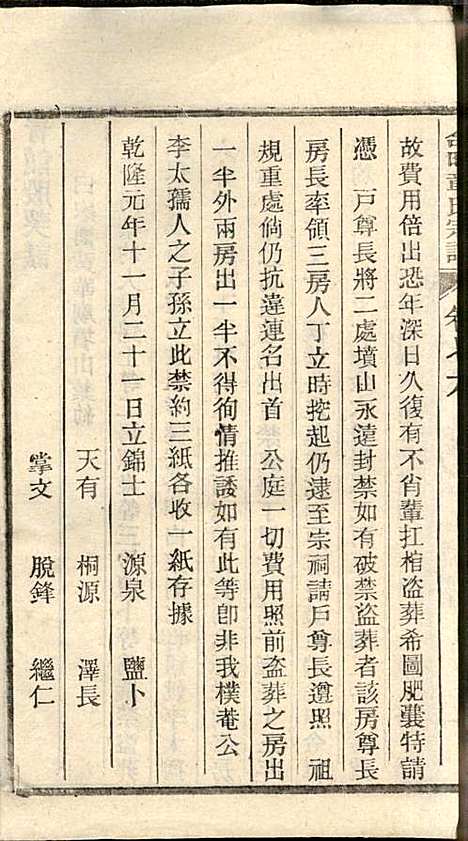 氏宗譜 卷之六
故費用倍出恐年深日久復有不肖輩扛棺盜葬希圖肥囊特請
憑 戶尊長將二處墳山永遠封禁如有破禁盜葬者該房尊長
房長率領三房人丁立時挖起仍逮至宗祠請戶尊長遵照 祖
規重處倘仍抗違連名出首 公庭一切費用照前盜葬之房出
一半外兩房出一半不得徇情推諉如有此等卽非我樸菴公
李太孺人之子孫立此禁約三紙各收一紙存據
乾隆元年十一月二十一日立錦士 源泉 鹽卜
天有 桐源 澤長
掌文 脫鋒 繼仁